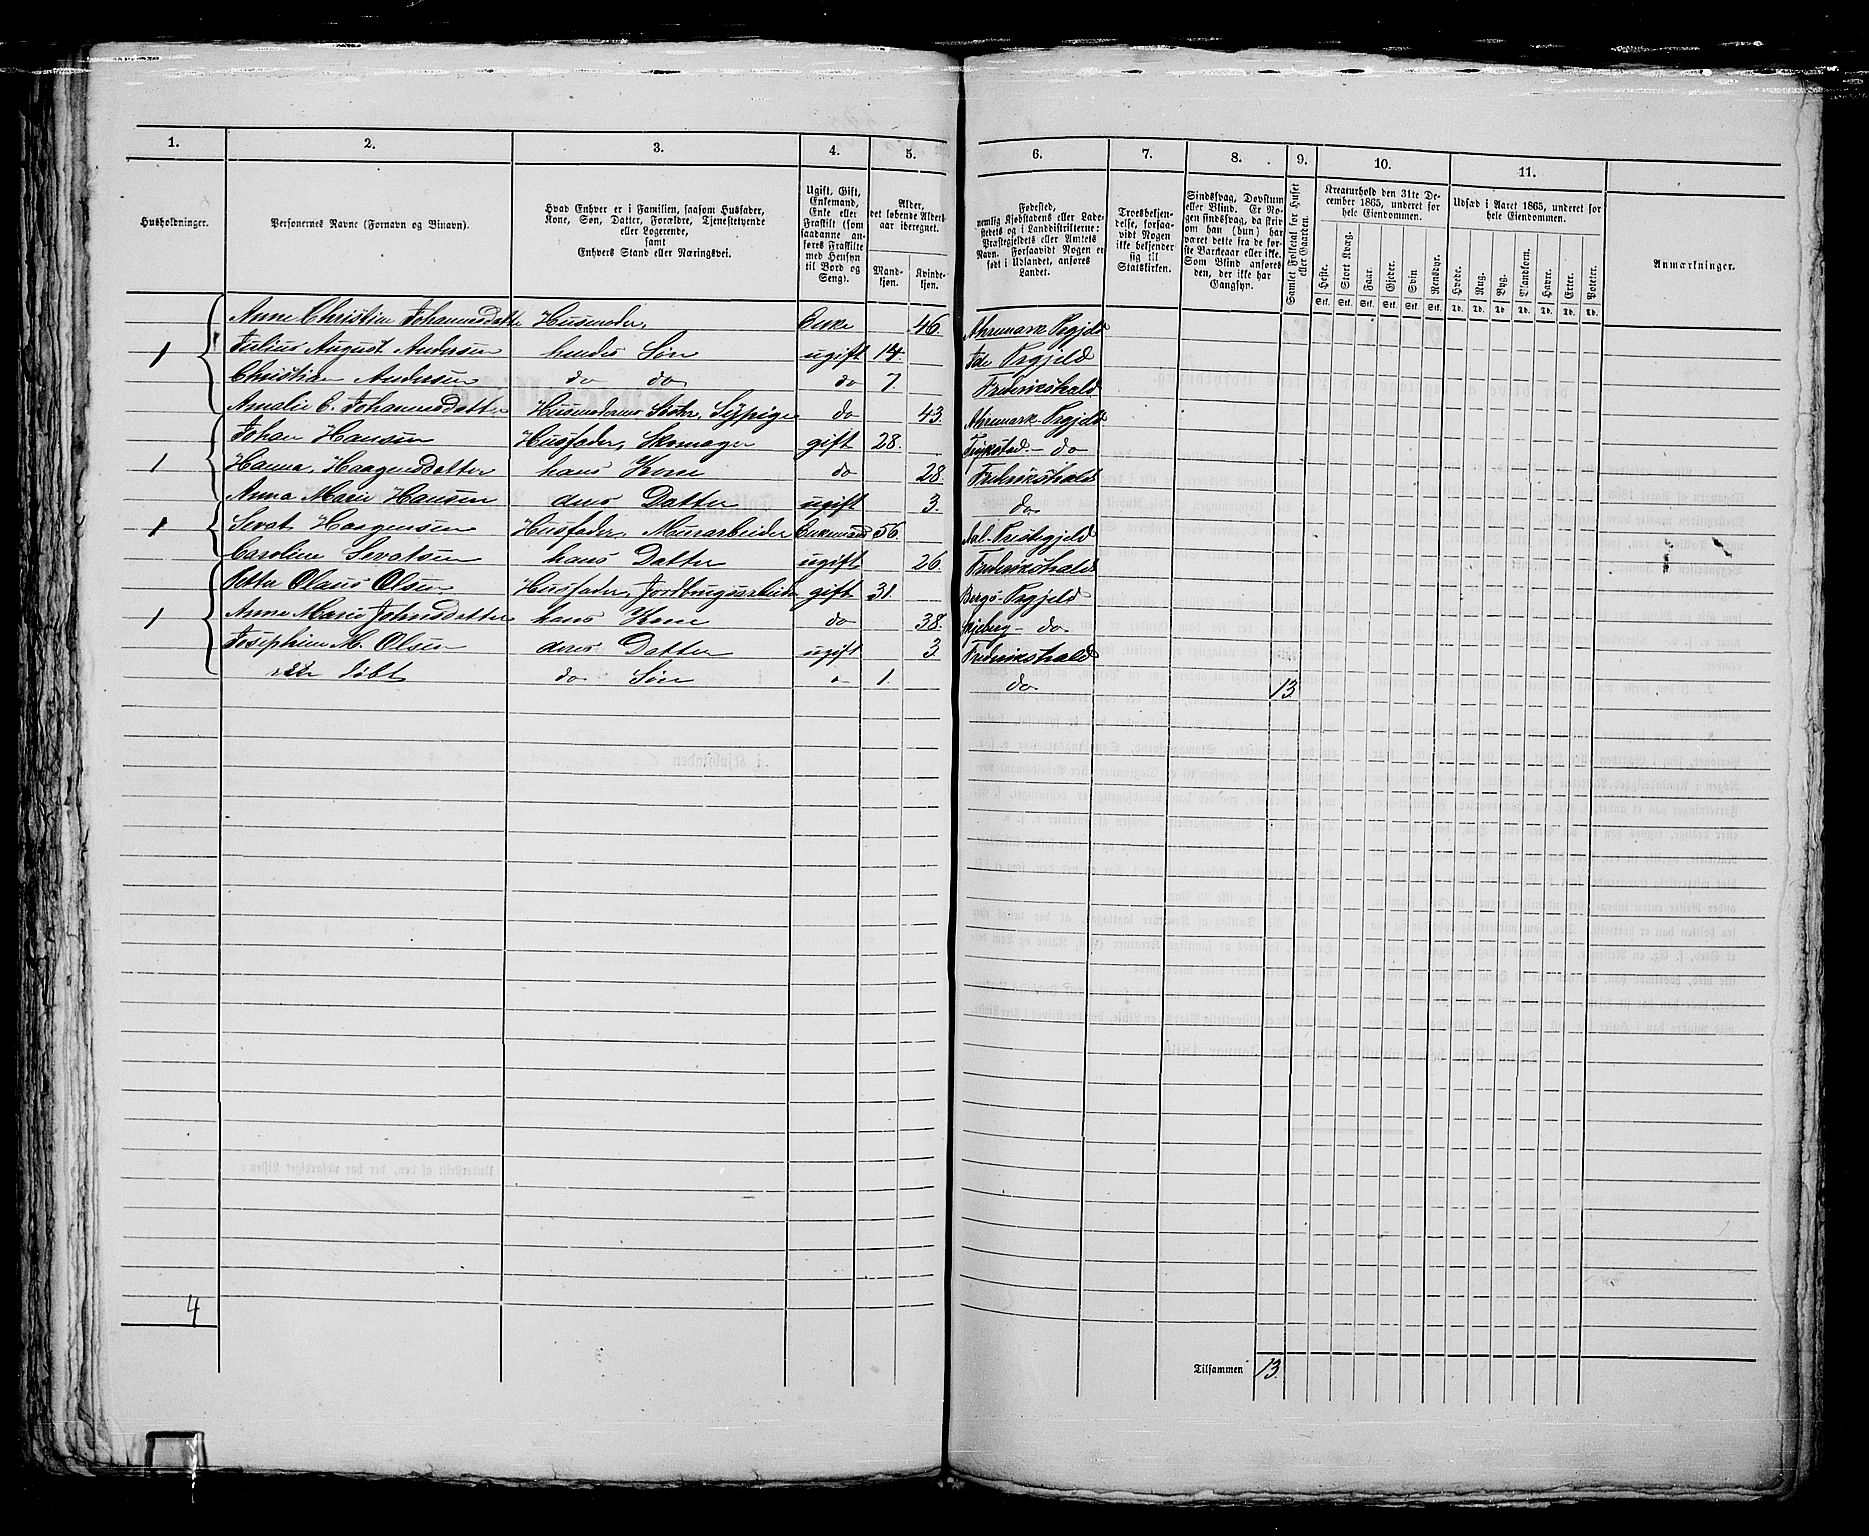 1. 2. 3. 4. 5. 6. 7. 8. 9. 10. 11.
Husholdninger.
Personernes Navne (Fornavn og Binavn).
Hvad Enhver er i Familien, saasom Husfader, Kone, Søn, Datter, Forældre, Tjenestetyende eller Logerende, samt Enhvers Stand eller Næringsvei.
Ugift, Gift, Enkemand, Enke eller Fraskilt (som saadanne anføres Fraskilte med Hensyn til Bord og Seng).
Alder, det løbende Alders-aar iberegnet.
Mand-kjøn. Kvinde-kjøn.
Fødested, nemlig Kjøbstadens eller Ladestedets og i Landdistrikterne: Præstegjeldets eller Amtets Navn. Forsaavidt Nogen er født i Udlandet, anføres Landet.
Troesbekjendelse, forsaavidt Nogen ikke bekjender sig til Statskirken.
Sindssvag, Døvstum eller Blind. Er Nogen sindssvag, da skrives om han (hun) har været dette fra de første Barneaar eller ikke. Som Blind anføres den, der ikke har Gangsyn.
Samlet Folketal for Huset eller Gaarden.
Kreaturhold den 31te December 1865, underet for hele Eiendommen.
Heste. Stort Kvæg. Faar. Gjeder. Svin Rensdyr.
Stk. Stk. Stk. Stk. Stk. Stk.
Udsæd i Aaret 1865, underet for hele Eiendommen.
Hvede. Rug. Byg. Blandkorn. Havre. Erter. Poteter.
Td. Td. Td. Td. Td. Td. Td.
Anmærkninger.
Anne Christine Johannesdatter Husmoder, Enke 46. Ahremark Prgjeld
1 Julius August Andersen hendes Søn ugift 14. Ide Prgjeld
Christian Andersen do do do 7. Frederikshald
Amalie C. Johannesdatter Husmoderens Søster, Sypige do 43. Ahremark-Prgjeld
Johan Hansen Husfader, Skomager gift 28. do
1 Hanna, Haagensdatter hans Kone do 28. Frederikshald
Anna Marie Hansen deres Datter ugift 3. do
1 Sevat Haagensen Husfader, Murarbeider Enkemand 56. Aal-Præstegjeld
Caroline Sevatsen hans Datter ugift 26. Frederikshald
Petter Olaus Olsen Husfader, gift 31. Bergs-Prgjeld
1 Anne Marie Johnsdatter hans Kone do 38. Skjeberg - do
Josephine M. Olsen deres Datter ugift 3. Frederikshald
døbt do Søn 1. do 13
4
Tilsammen 13.